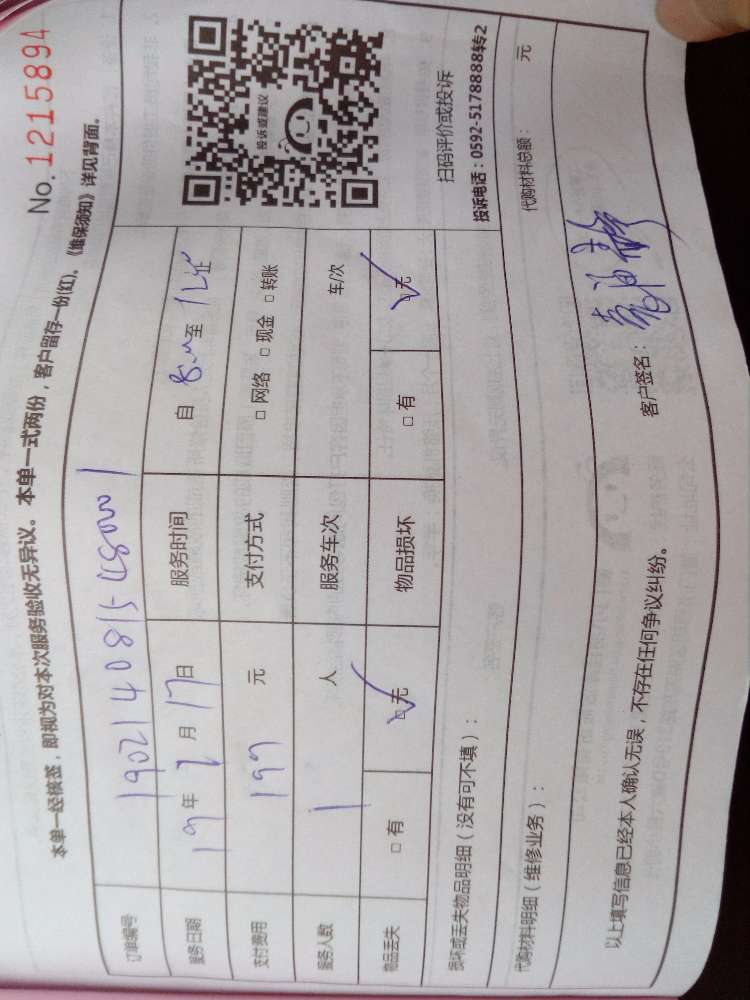 No.1215894
本单一经核签，即视为对本次服务验收无异议。本单一式两份，客户留存一份(红)。《维保须知》详见背面。
订单编号
服务日期 19年2月17日 服务时间 自 至
支付费用 199 元 支付方式 □ 网络 □ 现金 □ 转账
服务人数 1 人 服务车次 车/次
物品丢失 □ 有 □ 无 ✓ 物品损坏 □ 有 □ 无 ✓
投诉或建议
扫码评价或投诉
投诉电话：0592-5178888转2
损坏或丢失物品明细（没有可不填）：
代购材料明细（维修业务）： 代购材料总额： 元
以上填写信息已经本人确认无误，不存在任何争议纠纷。
客户签名：